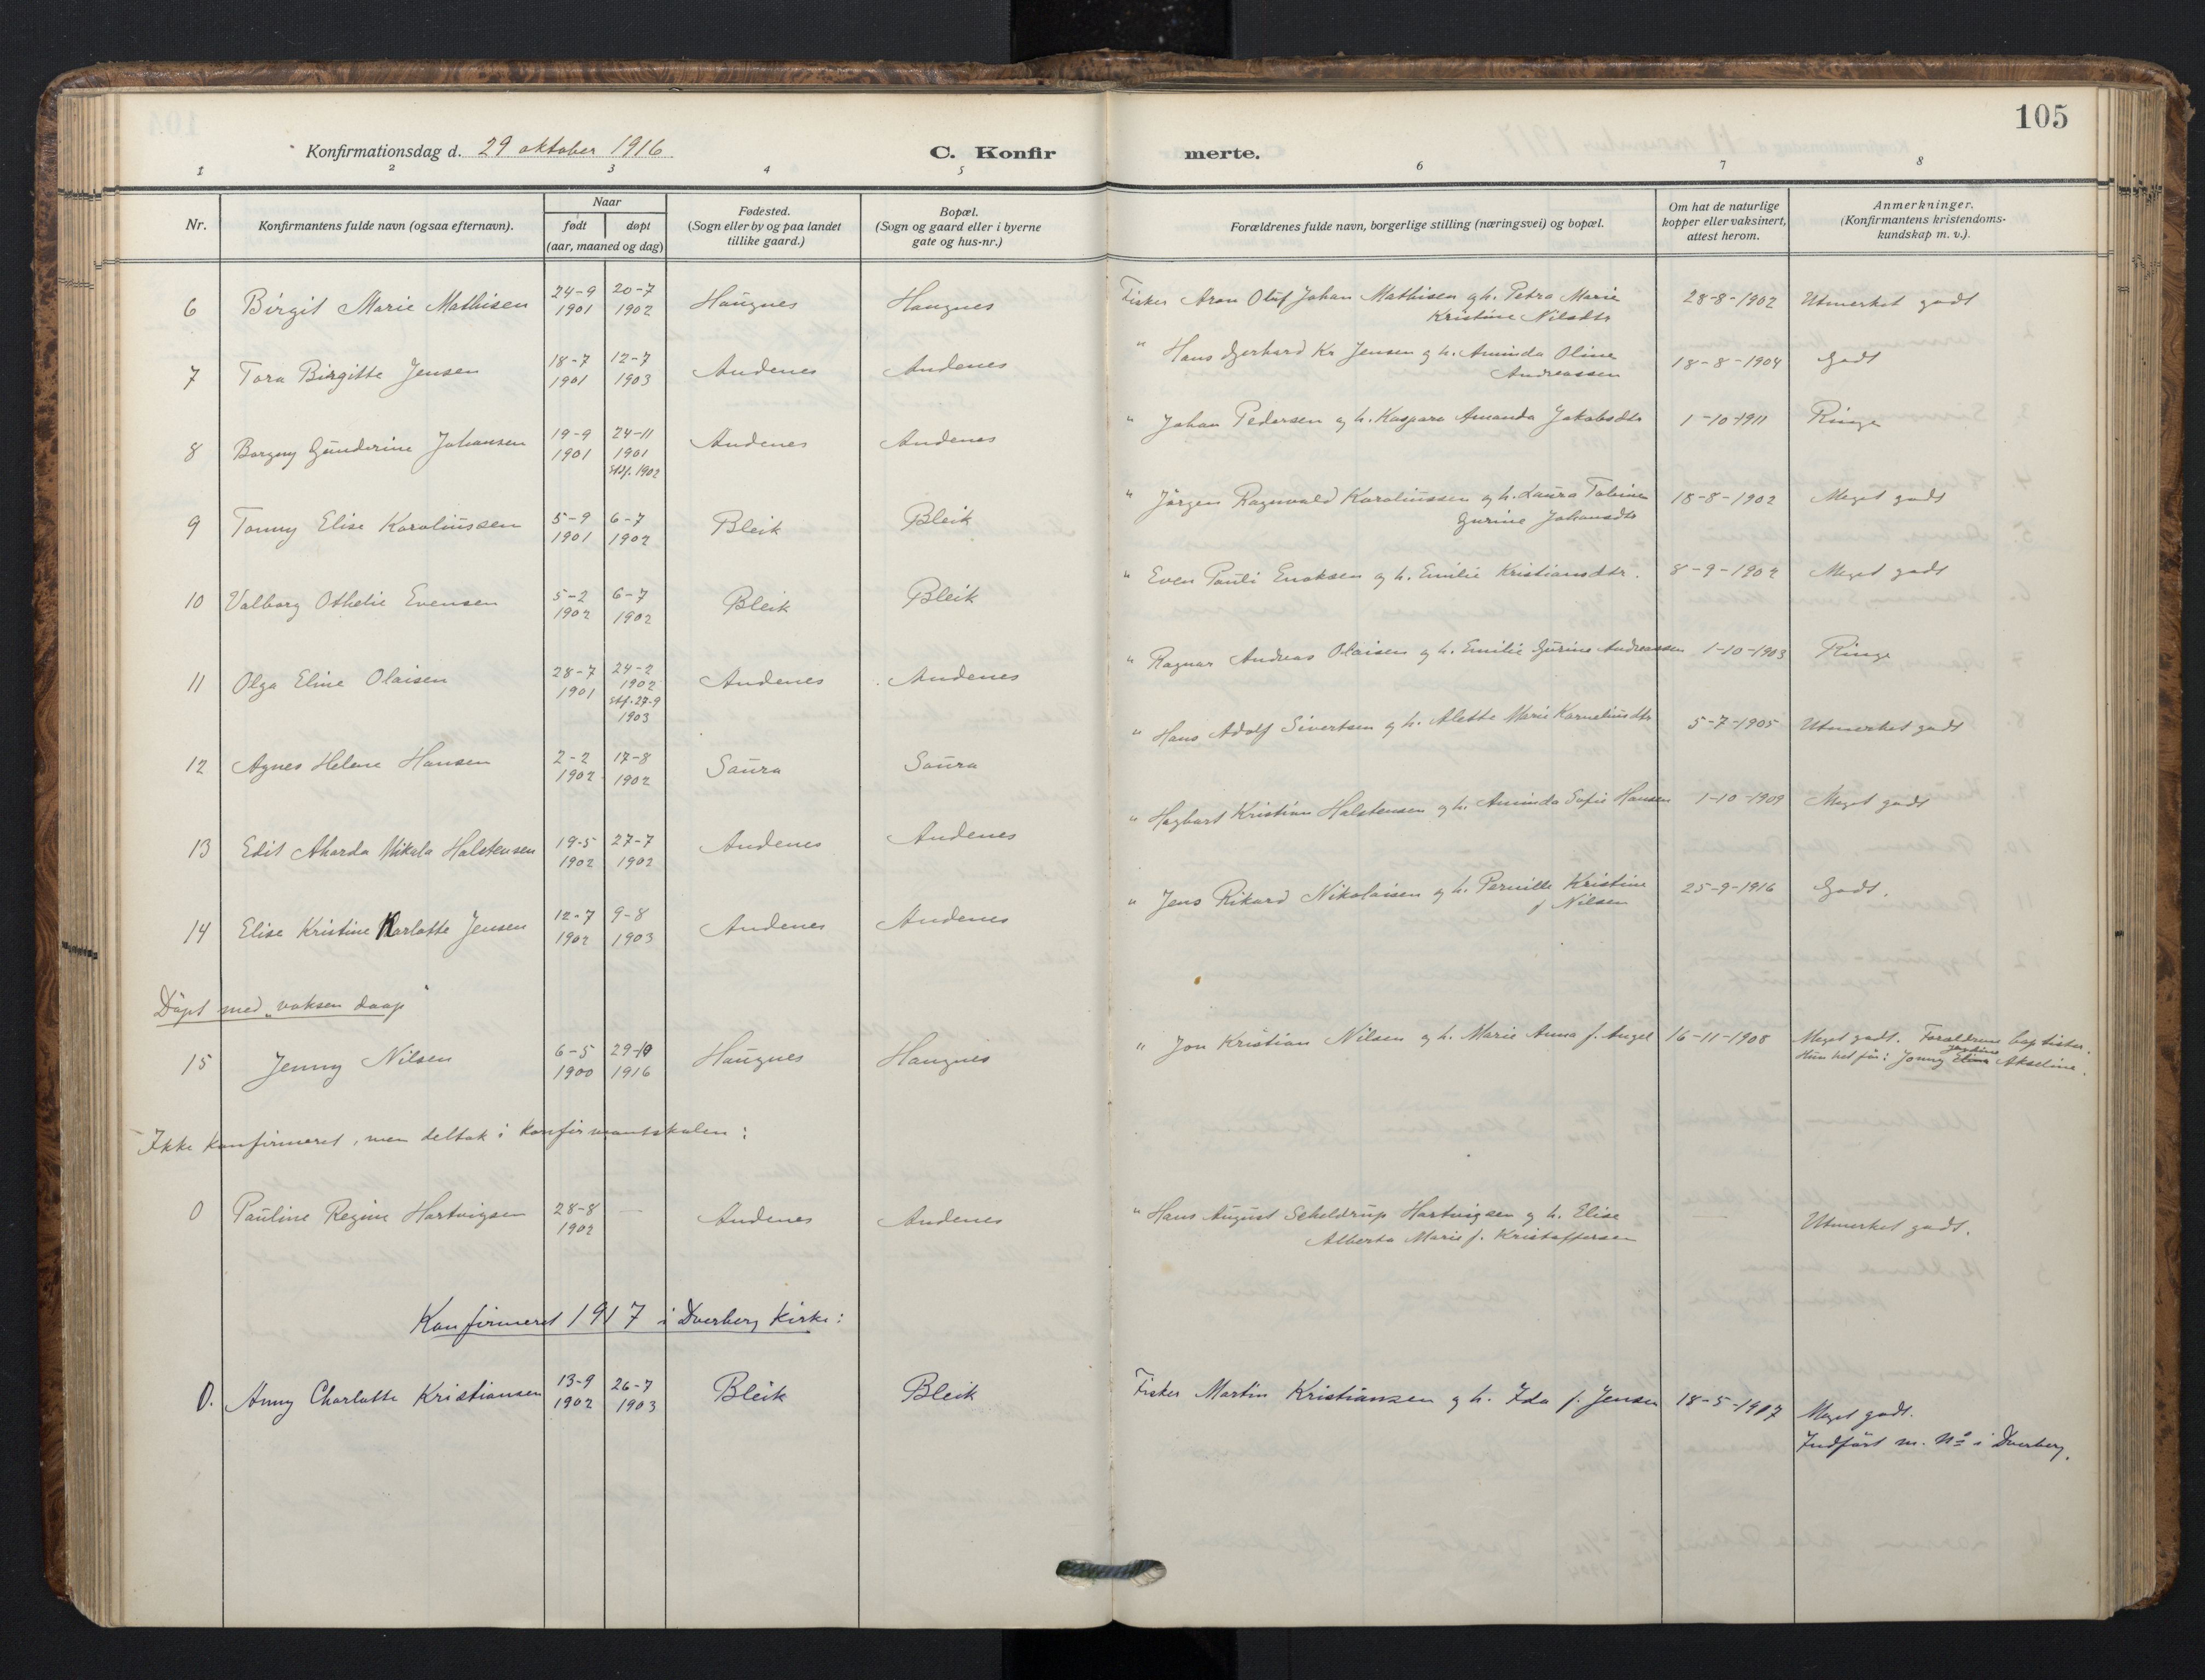 105
Konfirmationsdag d. 29 oktober 1916
C. Konfirmerte.
1 2 3 4 5 6 7 8
Nr.
Konfirmantens fulde navn (ogsaa efternavn).
Naar
født døpt
(aar, maaned og dag)
Fødested.
(Sogn eller by og paa landet
tillike gaard.)
Bopæl.
(Sogn og gaard eller i byerne
gate og hus-nr.)
Forældrenes fulde navn, borgerlige stilling (næringsvei) og bopæl.
Om hat de naturlige
kopper eller vaksinert,
attest herom.
Anmerkninger.
(Konfirmantens kristendoms-
kundskap m. v.).
6 Birgit Marie Mathisen 24-9 1901 20-7 1902 Haugnes Haugnes Fisker Aron Oluf Johan Mathisen og h. Petra Marie
Kristine Nilsdtr 28-8-1902 Utmerket godt
7 Tora Birgitte Jensen 18-7 1901 12-7 1903 Andenes Andenes " Hans Gerhard Kr Jensen og h. Aminda Oline
Andreassen 18-8-1904 Godt
8 Borgny Gunderine Johansen 19-9 1901 24-11 1901 stdf. 1902 Andenes Andenes " Johan Pedersen og h. Kaspara Amanda Jakobsdtr 1-10-1911 Ringe
9 Tonny Elise Karoliussen 5-9 1901 6-7 1902 Bleik Bleik " Jørgen Ragnvald Karoliussen og h. Laura Tobine
Gurine Johansdtr 18-8-1902 Meget godt
10 Valborg Othelie Evensen 5-2 1902 6-7 1902 Bleik Bleik " Even Pauli Enoksen og h. Emilie Kristiansdtr. 8-9-1902 Meget godt
11 Olga Eline Olaisen 28-7 1901 24-2 1902 stf. 27-9 1903 Andenes Andenes " Ragnar Andreas Olaisen og h. Emilie Gurine Andreassen 1-10-1903 Ringe
12 Agnes Helene Hansen 2-2 1902 17-8 1902 Saura Saura " Hans Adolf Sivertsen og h. Alette Marie Korneliusdtr 5-7-1905 Utmerket godt
13 Edit Aharda Mikala Halstensen 19-5 1902 27-7 1902 Andenes Andenes " Hagbart Kristian Halstensen og h. Aminda Sofie Hansen 1-10-1909 Meget godt
14 Elise Kristine Karlotte Jensen 12-7 1902 9-8 1903 Andenes Andenes " Jens Rikard Nikolaisen og h. Pernille Kristine
f Nilsen 25-9-1916 Godt.
Døpt med „voksen daap"
15 Jenny Nilsen 6-5 1900 29-10 1916 Haugnes Haugnes " Jon Kristian Nilsen og h. Marie Anna f. Angel 16-11-1908 Meget godt. Forældrene baptister.
Hun het før: Jonny Elina Akseline.
Ikke konfirmeret, men deltok i konfirmantskolen:
0 Pauline Regine Hartvigsen 28-8 1902 — Andenes Andenes " Hans August Scheldrup Hartvigsen og h. Elise
Alberta Marie f. Kristoffersen — Utmerket godt.
Konfirmeret 1917 i Dverberg kirke:
0. Anny Charlotte Kristiansen 13-9 1902 26-7 1903 Bleik Bleik Fisker Martin Kristiansen og h. Ida f. Jensen 18-5-1917 Meget godt.
Indført m. No i Dverberg.